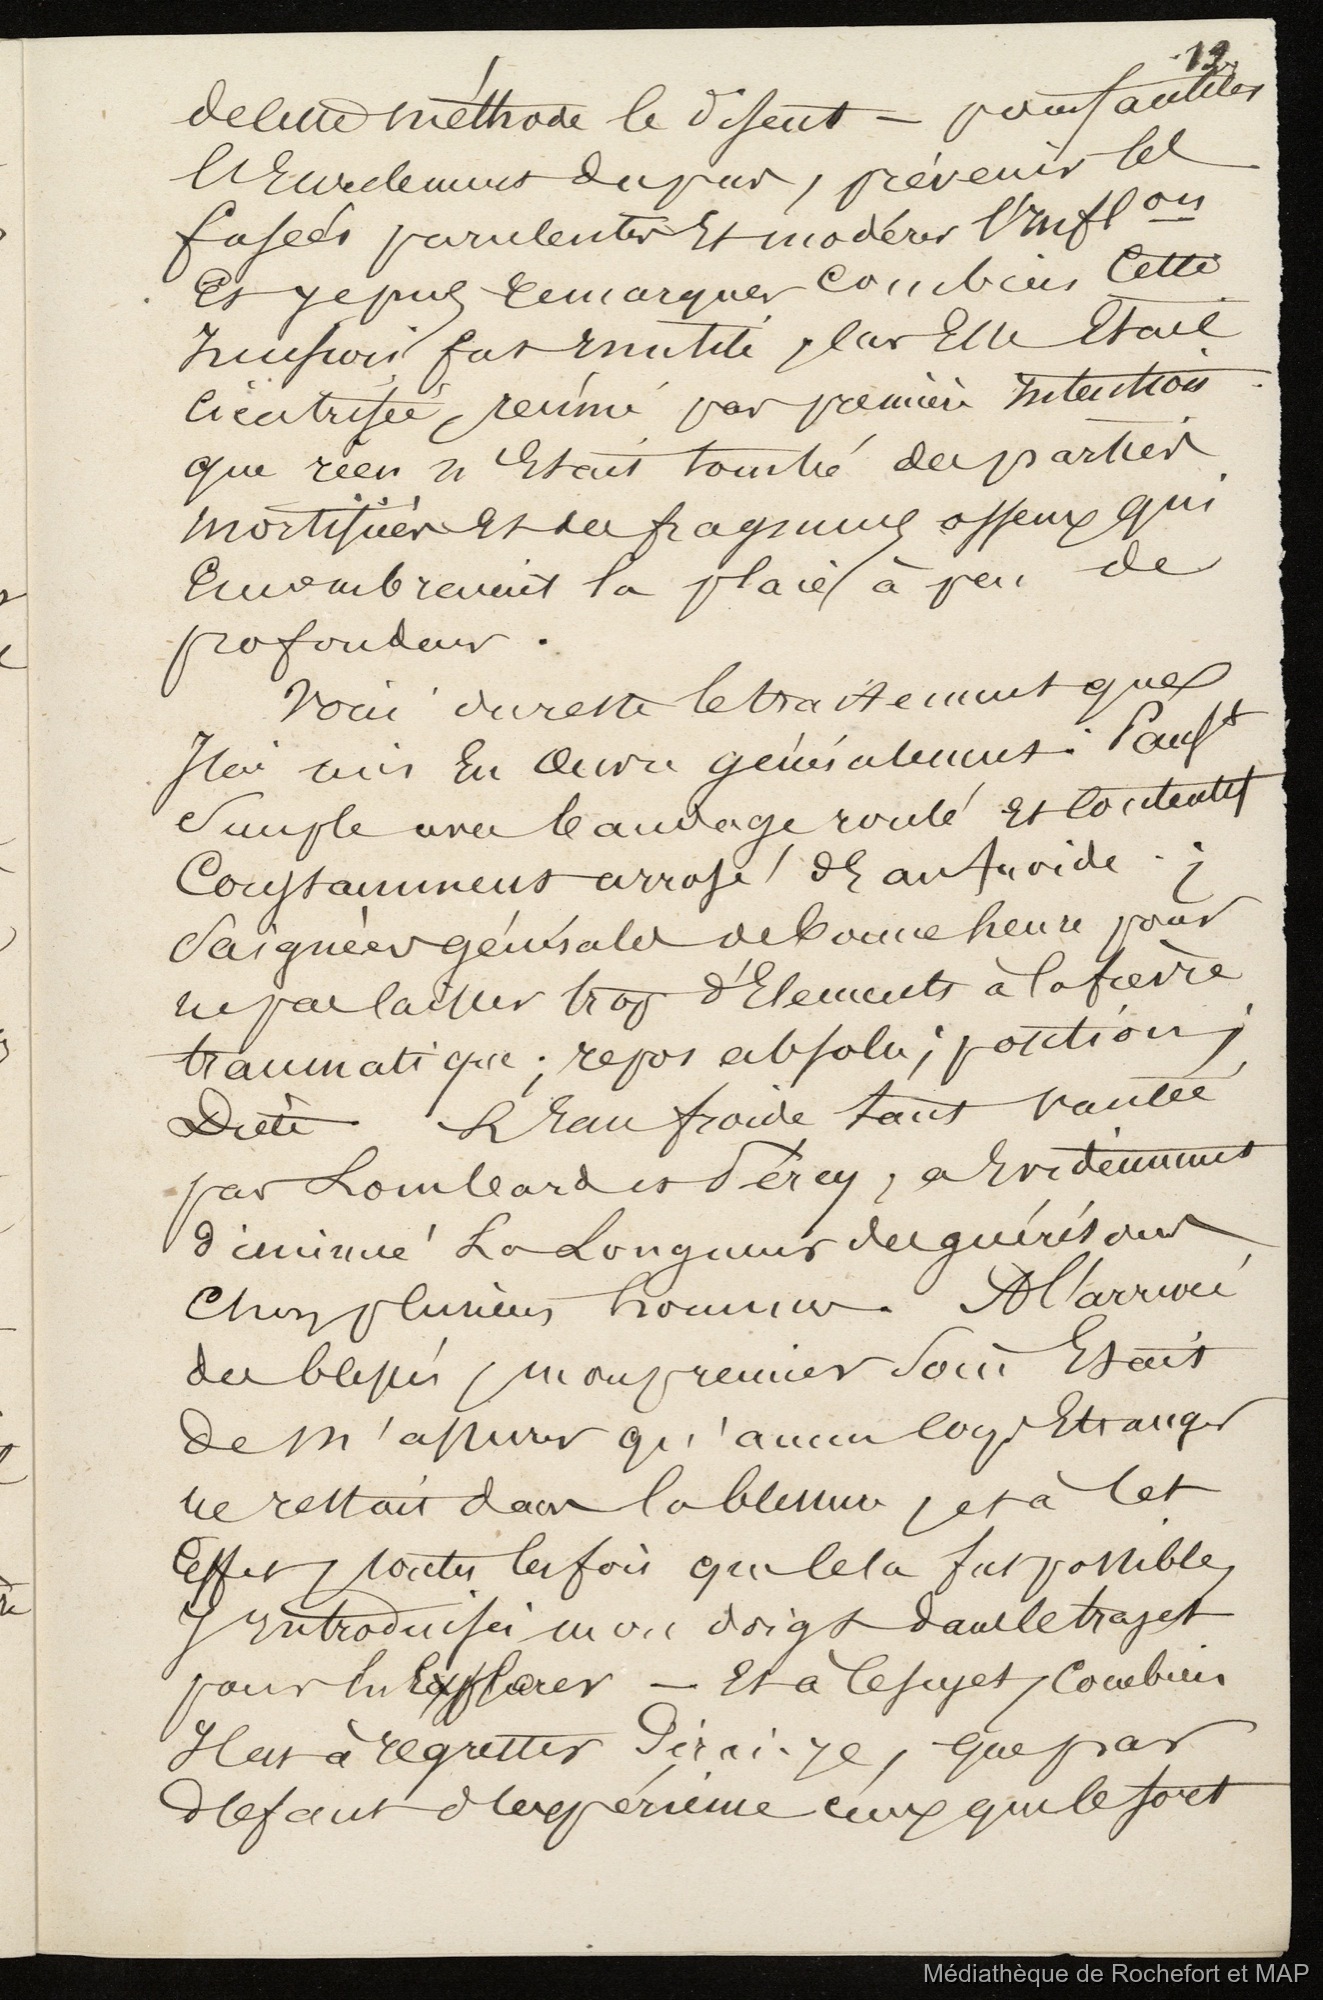 19
de cette méthode le disent — pour faciliter
l'Ecoulement du pus, prévenir les
fusées purulentes Et modérer l'Infl on
Et je pus remarquer combien cette
Incision fut Inutile, car Elle Etait
cicatrisée, réunie par première Intention
que rien n'Etait touché des parties
mortifiées Et des fragments osseux qui
Encombraient la plaie à peu de
profondeur.
Voici du reste le traitement que
J'ai mis En œuvre généralement: Panst
Simple avec bandage roulé Et contentif
Constamment arrosé d'Eau froide;
Saignées générales de bonne heure pour
ne pas laisser trop d'Elements à la fièvre
traumatique; repos absolu; position;
Diète. L'Eau froide tant vantée
par Lombard et Percy, a Evidemment
diminué La Longueur des guérisons
Chez plusieurs hommes. A l'arrivée
des blessés, mon premier Soin Etait
De m'assurer qu'aucun corps Etranger
ne restait dans la blessure, et à cet
Effet, toutes les fois que cela fut possible,
J'Introduisis mon doigt dans le trajet
pour les Explorer — Et à ce sujet, Combien
Il est à regretter Dirai-je, que par
défaut d'expérience ceux que le sort
Médiathèque de Rochefort et MAP